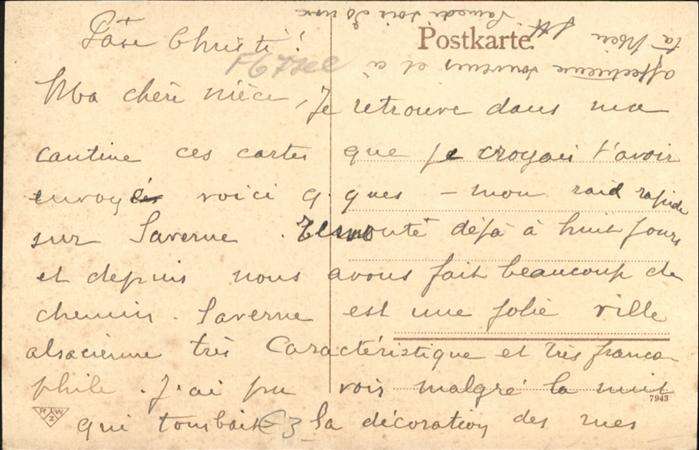 Pax Christi!
Postkarte.
Ma chère nièce, Je retrouve dans ma
cantine ces cartes que je croyais t'avoir
envoyés voici q.ques - mon raid rapide
sur Saverne. Remonte déjà à huit jours
et depuis nous avons fait beaucoup de
chemin. Saverne est une jolie ville
alsacienne très Caractéristique et très franco-
phile. J'ai pu voir malgré la nuit
qui tombait la décoration des rues
affectueux souvenirs et
Samedi soir 30 nov
7943